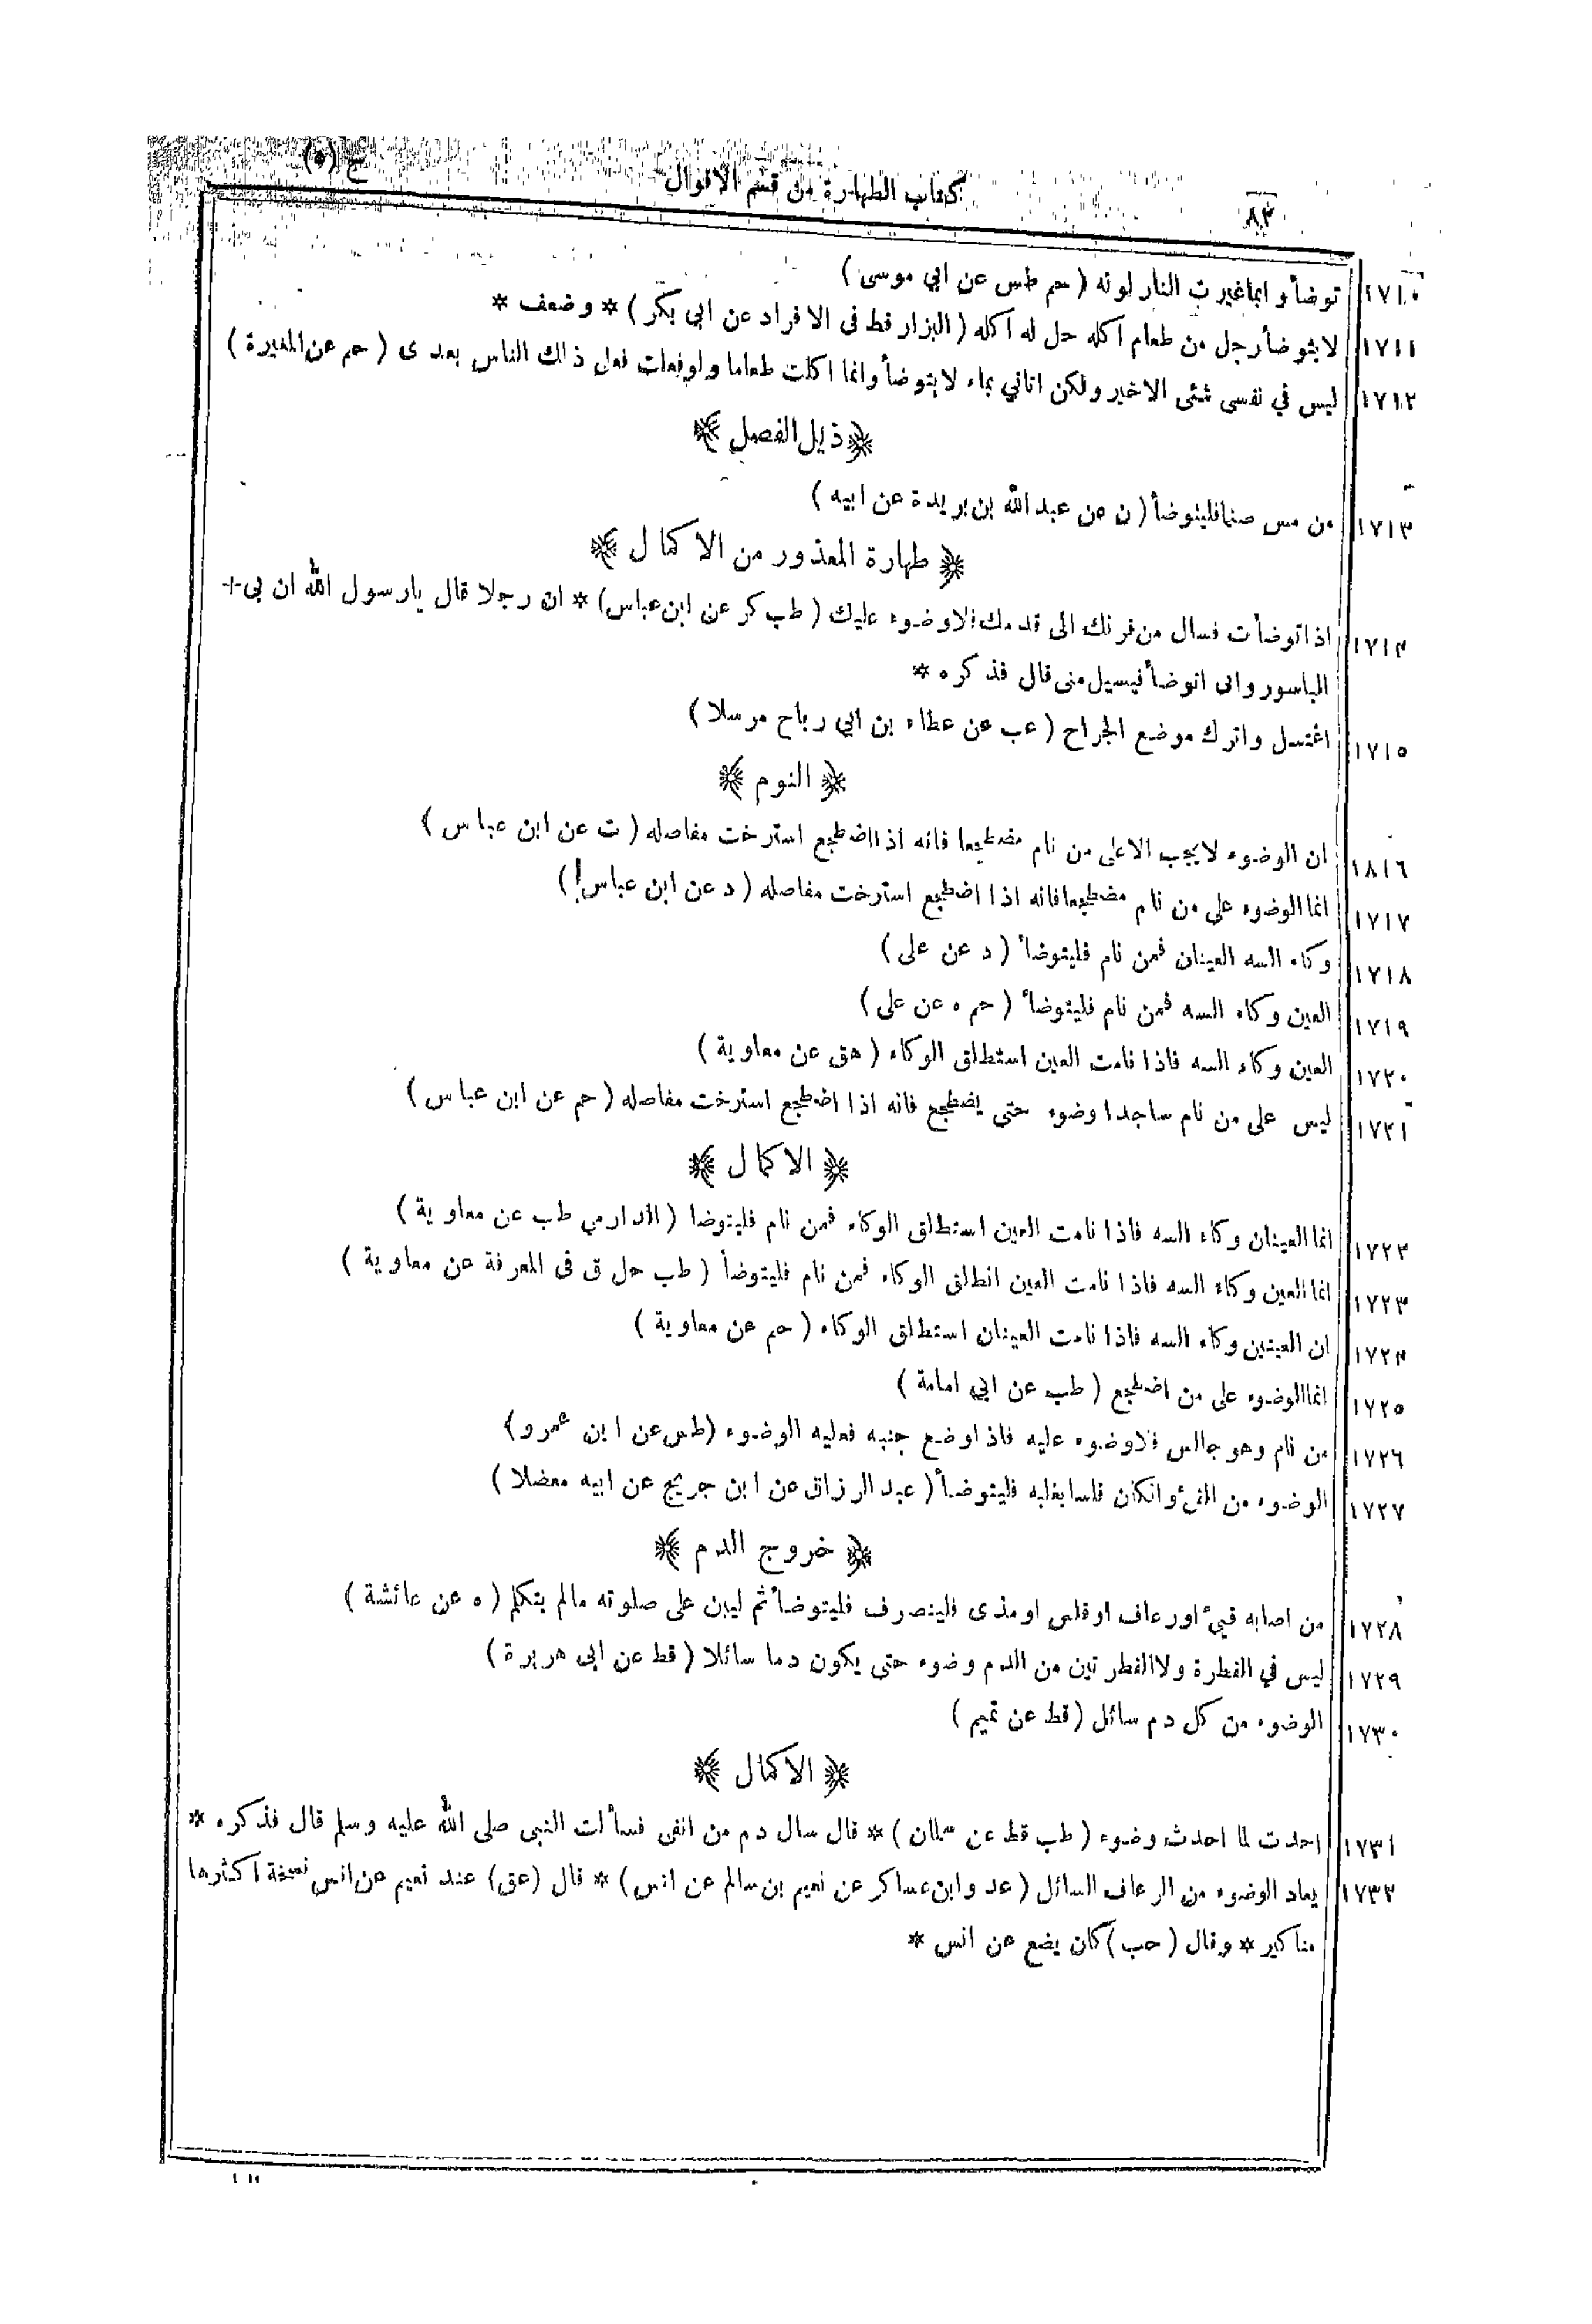 ٨٢ كتاب الطهارة من قسم الاقوال ج (٥)
١٧١٠ توضأوا مما غيرت النار لونه ( حم طس عن ابي موسى )
١٧١١ لايتوضأ رجل من طعام اكله حل له اكله ( البزار قط فى الافراد عن ابى بكر ) * وضعف *
١٧١٢ ليس في نفسى شئى الاخير ولكن اتاني بماء لايتوضأ وانما اكلت طعاما ولو فعلت فعل ذالك الناس بعدى ( حم عن المغيرة )
﴿ ذيل الفصل ﴾
١٧١٣ من مس صنما فليتوضأ ( ن عن عبدالله بن بريدة عن ابيه )
﴿ طهارة المعذور من الاكمال ﴾
١٧١٤ اذا توضأت فسال من قرنك الى قدمك فلا وضوء عليك ( طب كر عن ابن عباس) * ان رجلا قال يارسول الله ان بى +
الباسور وانى اتوضأ فيسيل منى قال فذكره *
١٧١٥ اغتسل واترك موضع الجراح ( عب عن عطاء بن ابي رباح مرسلا )
﴿ النوم ﴾
١٨١٦ ان الوضوء لايجب الاعلى من نام مضطجعا فانه اذا اضطجع استرخت مفاصله ( ت عن ابن عباس )
١٧١٧ انما الوضوء على من نام مضطجعا فانه اذا اضطجع استرخت مفاصله ( د عن ابن عباس )
١٧١٨ وكاء السه العينان فمن نام فليتوضأ ( د عن على )
١٧١٩ العين وكاء السه فمن نام فليتوضأ ( حم ه عن على )
١٧٢٠ العين وكاء السه فاذا نامت العين استطلق الوكاء ( هق عن معاوية )
١٧٢١ ليس على من نام ساجدا وضوء حتى يضطجع فانه اذا اضطجع استرخت مفاصله ( حم عن ابن عباس )
﴿ الاكمال ﴾
١٧٢٢ انما العينان وكاء السه فاذا نامت العين استطلق الوكاء فمن نام فليتوضا ( الدارمي طب عن معاوية )
١٧٢٣ انما العين وكاء السه فاذا نامت العين انطلق الوكاء فمن نام فليتوضأ ( طب حل ق فى المعرفة عن معاوية )
١٧٢٤ ان العينين وكاء السه فاذا نامت العينان استطلق الوكاء ( حم عن معاوية )
١٧٢٥ انما الوضوء على من اضطجع ( طب عن ابي امامة )
١٧٢٦ من نام وهو جالس فلا وضوء عليه فاذا وضع جنبه فعليه الوضوء (طس عن ابن عمرو)
١٧٢٧ الوضوء من القئ وانكان قلسا يغلبه فليتوضأ ( عبد الرزاق عن ابن جريج عن ابيه معضلا )
﴿ خروج الدم ﴾
١٧٢٨ من اصابه قيئ اورعاف اوقلس او مذى فلينصرف فليتوضأ ثم ليبن على صلوته مالم يتكلم ( ه عن عائشة )
١٧٢٩ ليس في القطرة ولا القطرتين من الدم وضوء حتى يكون دما سائلا ( قط عن ابى هريرة )
١٧٣٠ الوضوء من كل دم سائل ( قط عن تميم )
﴿ الاكمال ﴾
١٧٣١ احدث لما احدث وضوء ( طب قط عن سلمان ) * قال سال دم من انفى فسألت النبى صلى الله عليه وسلم قال فذكره *
١٧٣٢ يعاد الوضوء من الرعاف السائل ( عد وابن عساكر عن نعيم بن سالم عن انس ) * قال (عق) عند نعيم عن انس نسخة اكثرها
مناكير * وقال ( حب ) كان يضع عن انس *